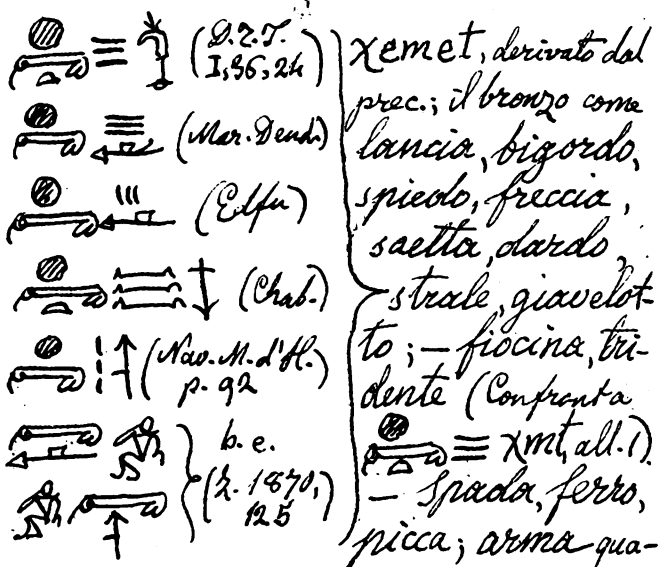 (D.Z.T.
I,36,24)
(Mar. Dend.)
(Edfu)
(Chab.)
(Nav. M. d'H.
p. 92
b. e.
(Z. 1870,
125
χemet, derivato dal
prec.; il bronzo come
lancia, bigordo,
spiedo, freccia,
saetta, dardo,
strale, giavelot-
to; — fiocina, tri-
dente (Confronta
χmt, all. 1).
— Spada, ferro,
picca; arma qua-